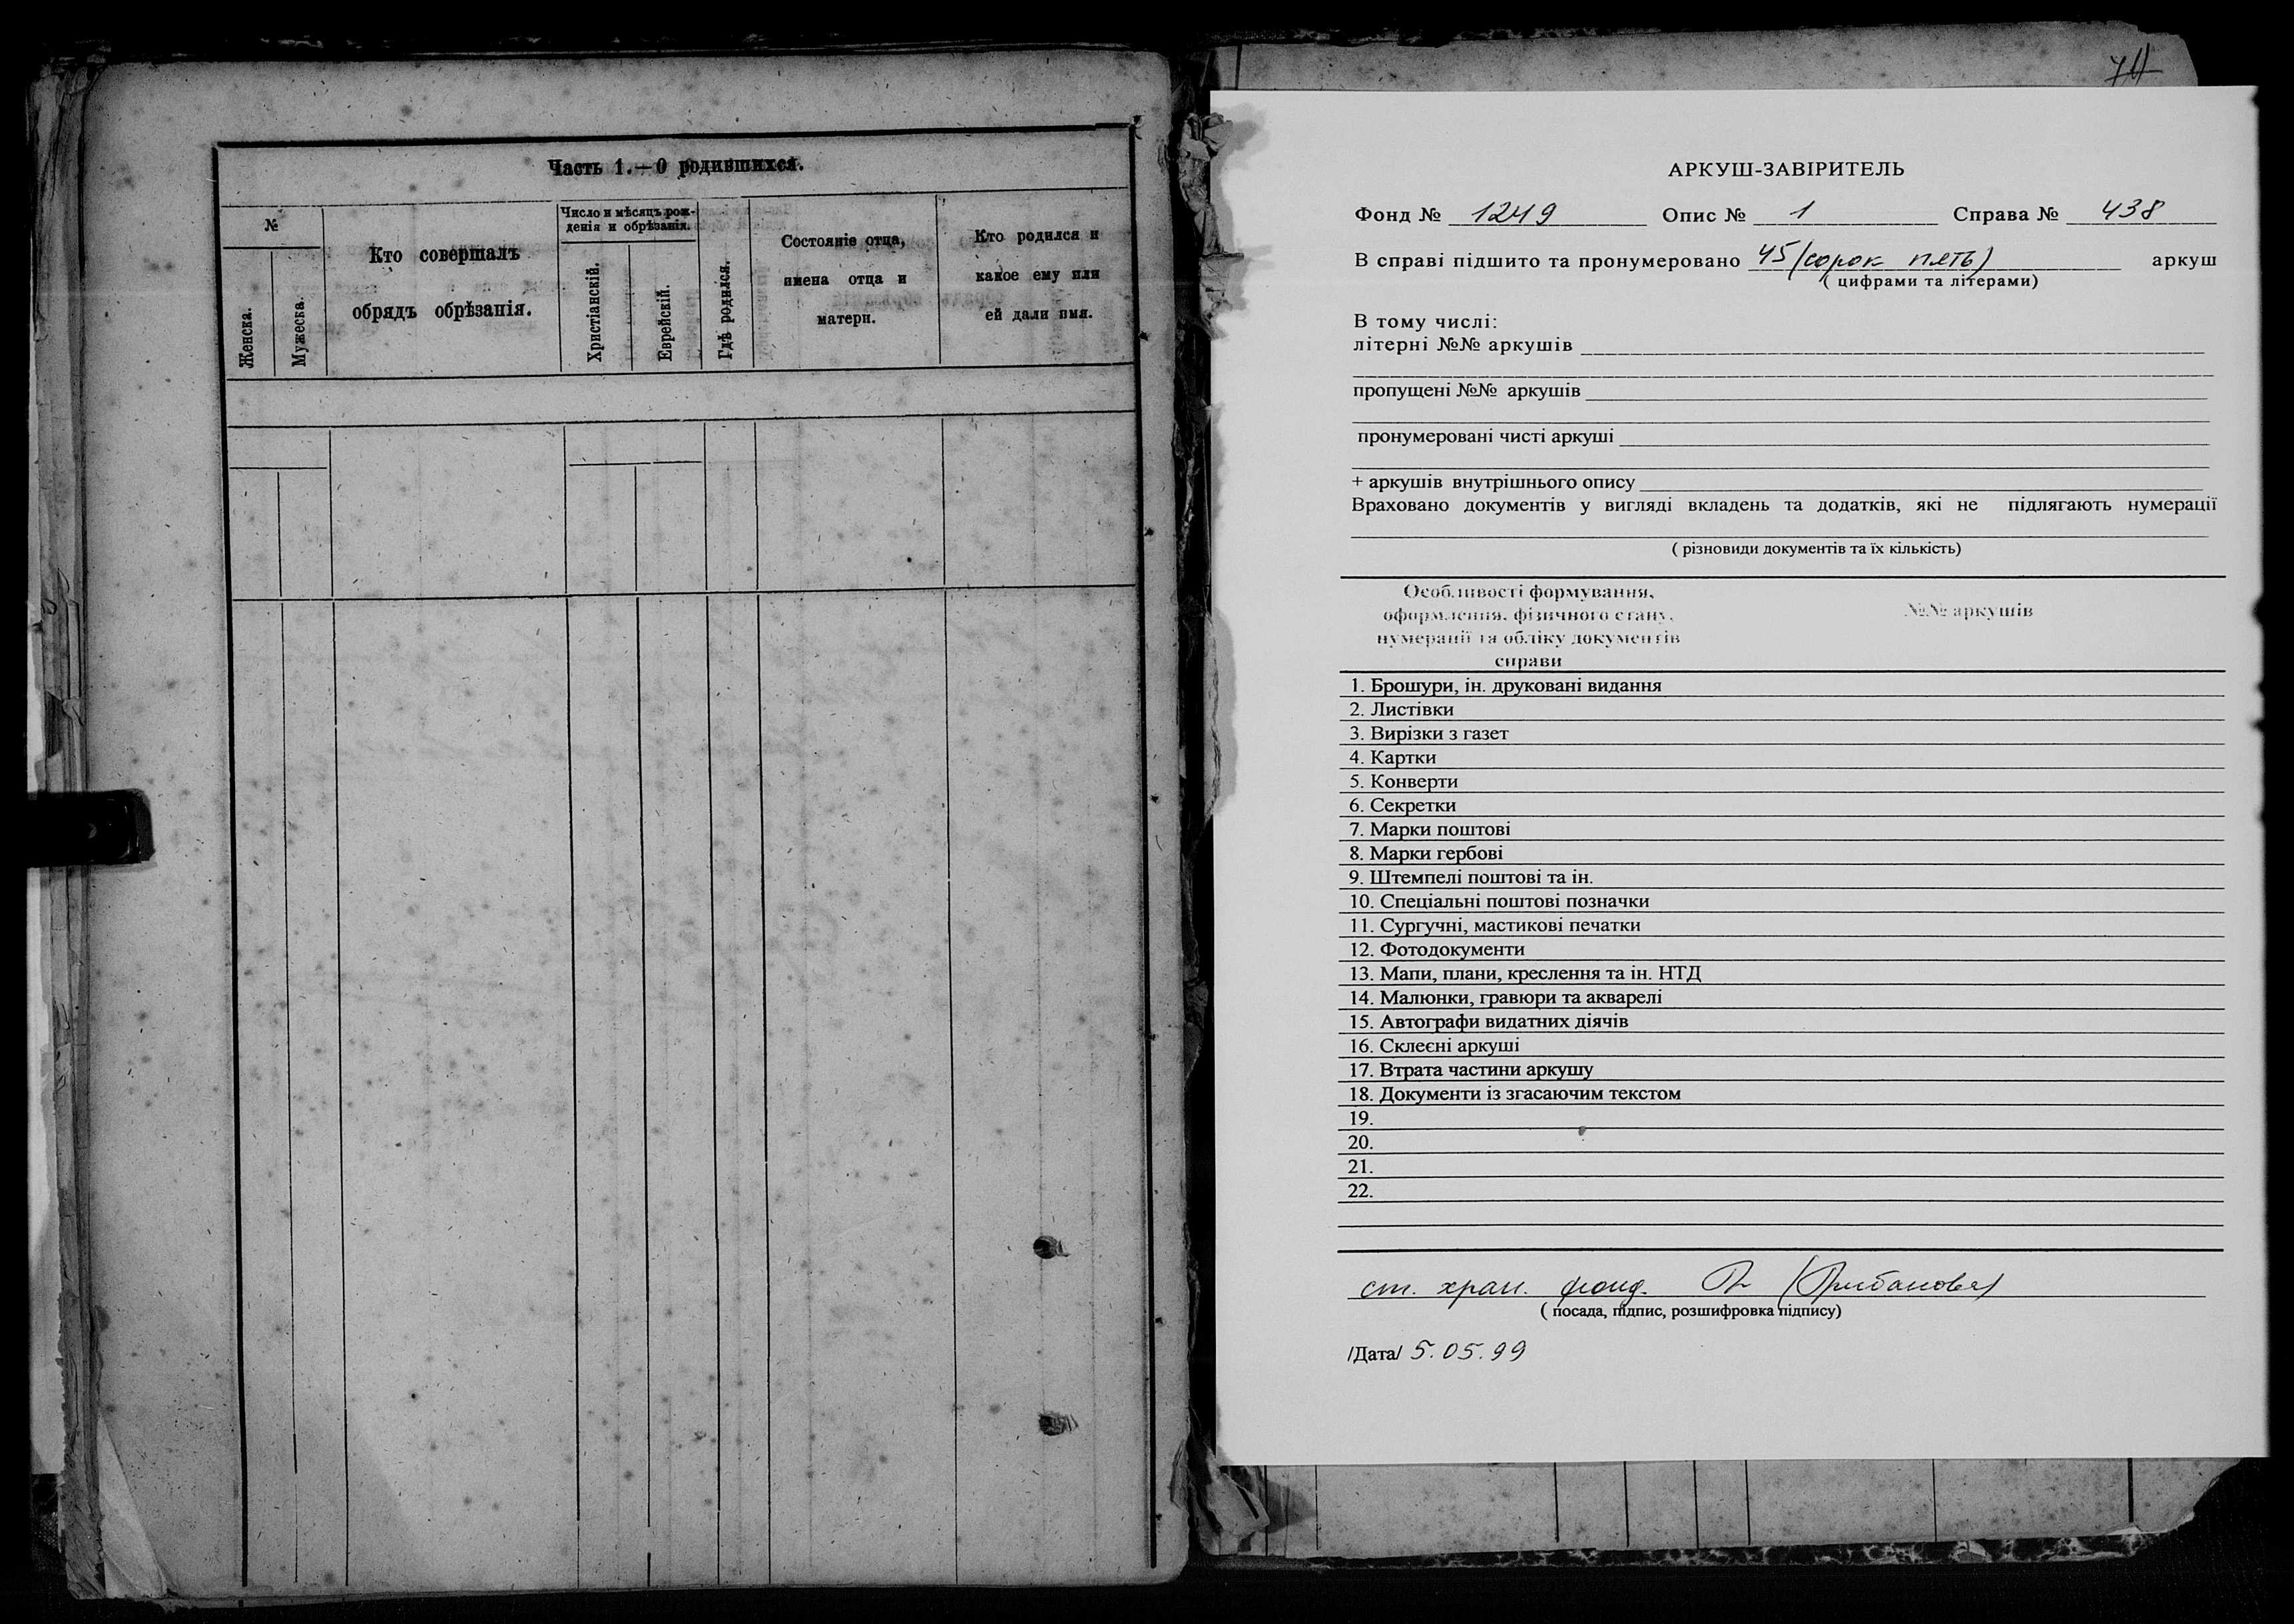 Часть 1.—О родившихся.
№
Женска.
Мужеска.
Кто совершалъ
обрядъ обрѣзанія.
Число и мѣсяцъ рож-
денія и обрѣзанія.
Христіанскій.
Еврейскій.
Гдѣ родился.
Состояніе отца,
имена отца и
матери.
Кто родился и
какое ему или
ей дали имя.
АРКУШ-ЗАВІРИТЕЛЬ
Фонд № 1249 Опис № 1 Справа № 438
В справі підшито та пронумеровано 45 (сорок пять) аркуш
( цифрами та літерами)
В тому числі:
літерні №№ аркушів
пропущені №№ аркушів
пронумеровані чисті аркуші
+ аркушів внутрішнього опису
Враховано документів у вигляді вкладень та додатків, які не підлягають нумерації
( різновиди документів та їх кількість)
Особливості формування,
оформлення, фізичного стану,
нумерації та обліку документів
справи
№№ аркушів
1. Брошури, ін. друковані видання
2. Листівки
3. Вирізки з газет
4. Картки
5. Конверти
6. Секретки
7. Марки поштові
8. Марки гербові
9. Штемпелі поштові та ін.
10. Спеціальні поштові позначки
11. Сургучні, мастикові печатки
12. Фотодокументи
13. Мапи, плани, креслення та ін. НТД
14. Малюнки, гравюри та акварелі
15. Автографи видатних діячів
16. Склеєні аркуші
17. Втрата частини аркушу
18. Документи із згасаючим текстом
19.
20.
21.
22.
ст. хран. фонд.
( посада, підпис, розшифровка підпису)
/Дата/ 5.05.99